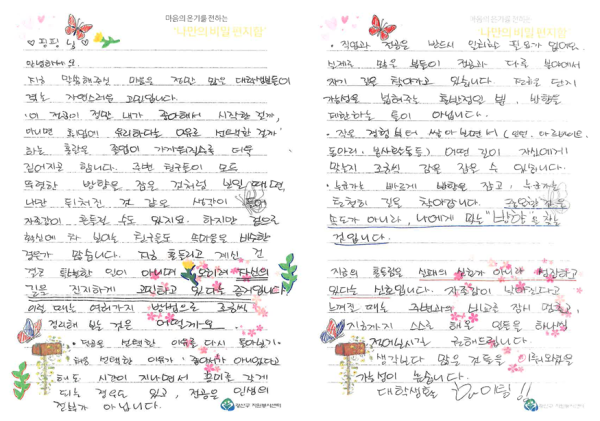 마음의 온기를 전하는
"나만의 비밀 편지함"
♡ 핑핑 님 ♡
안녕하세요.
지금 말씀해주신 마음은 정말 많은 대학생분들이
겪는 자연스러운 고민입니다.
'이 전공이 정말 내가 좋아해서 시작한 걸까,
아니면 취업에 유리하다는 이유로 선택한 걸까'
하는 혼란은 졸업이 가까워질수록 더욱
깊어지곤 합니다. 주변 친구들이 모두
뚜렷한 방향을 잡은 것처럼 보일 때면,
나만 뒤처진 것 같은 생각이 들어
자존감이 흔들릴 수도 있지요. 하지만 겉으로
확신에 차 보이는 친구들도 속마음은 비슷한
경우가 많습니다. 지금 흔들리고 계신 건
결코 잘못된 일이 아니며 오히려 자신의
길을 진지하게 고민하고 있다는 증거입니다
이럴 때는 여러가지 방법으로 조금씩
정리해 보는 것은 어떨까요
• 전공을 선택한 이유를 다시 돌아보기.
처음 선택한 이유가 '좋아해서'가 아니었다고
해도 시간이 지나면서 흥미를 갖게
되는 경우도 있고, 전공은 인생의
전부가 아닙니다.
달산구 자원봉사센터
마음의 온기를 전하는
"나만의 비밀 편지함"
• 직업과 전공은 반드시 일치할 필요가 없어요.
실제로 많은 분들이 전공과 다른 분야에서
자기 길을 찾아가고 있습니다. 전공은 단지
가능성을 넓혀주는 출발점일 뿐, 방향을
제한하는 틀이 아닙니다.
• 작은 경험부터 쌓아보면서 (인턴, 아르바이트,
동아리, 봉사활동등) 어떤 길이 자신에게
맞는지 조금씩 감을 잡을 수 있습니다.
• 누군가는 빠르게 방향을 잡고, 누군가는
천천히 길을 찾아갑니다. 중요한 것은
속도가 아니라, 나에게 맞는 "방향"을 찾는
것입니다.
지금의 흔들림은 실패의 신호가 아니라 성장하고
있다는 신호입니다. 자존감이 낮아졌다고
느껴질 때는 주변과의 비교는 잠시 멈추고,
지금까지 스스로 해온 일들을 하나씩
적어보시길 권해드립니다.
생각보다 많은 것들을 이뤄왔음을
가능성이 높습니다.
대학생활 화이팅!!
달산구 자원봉사센터